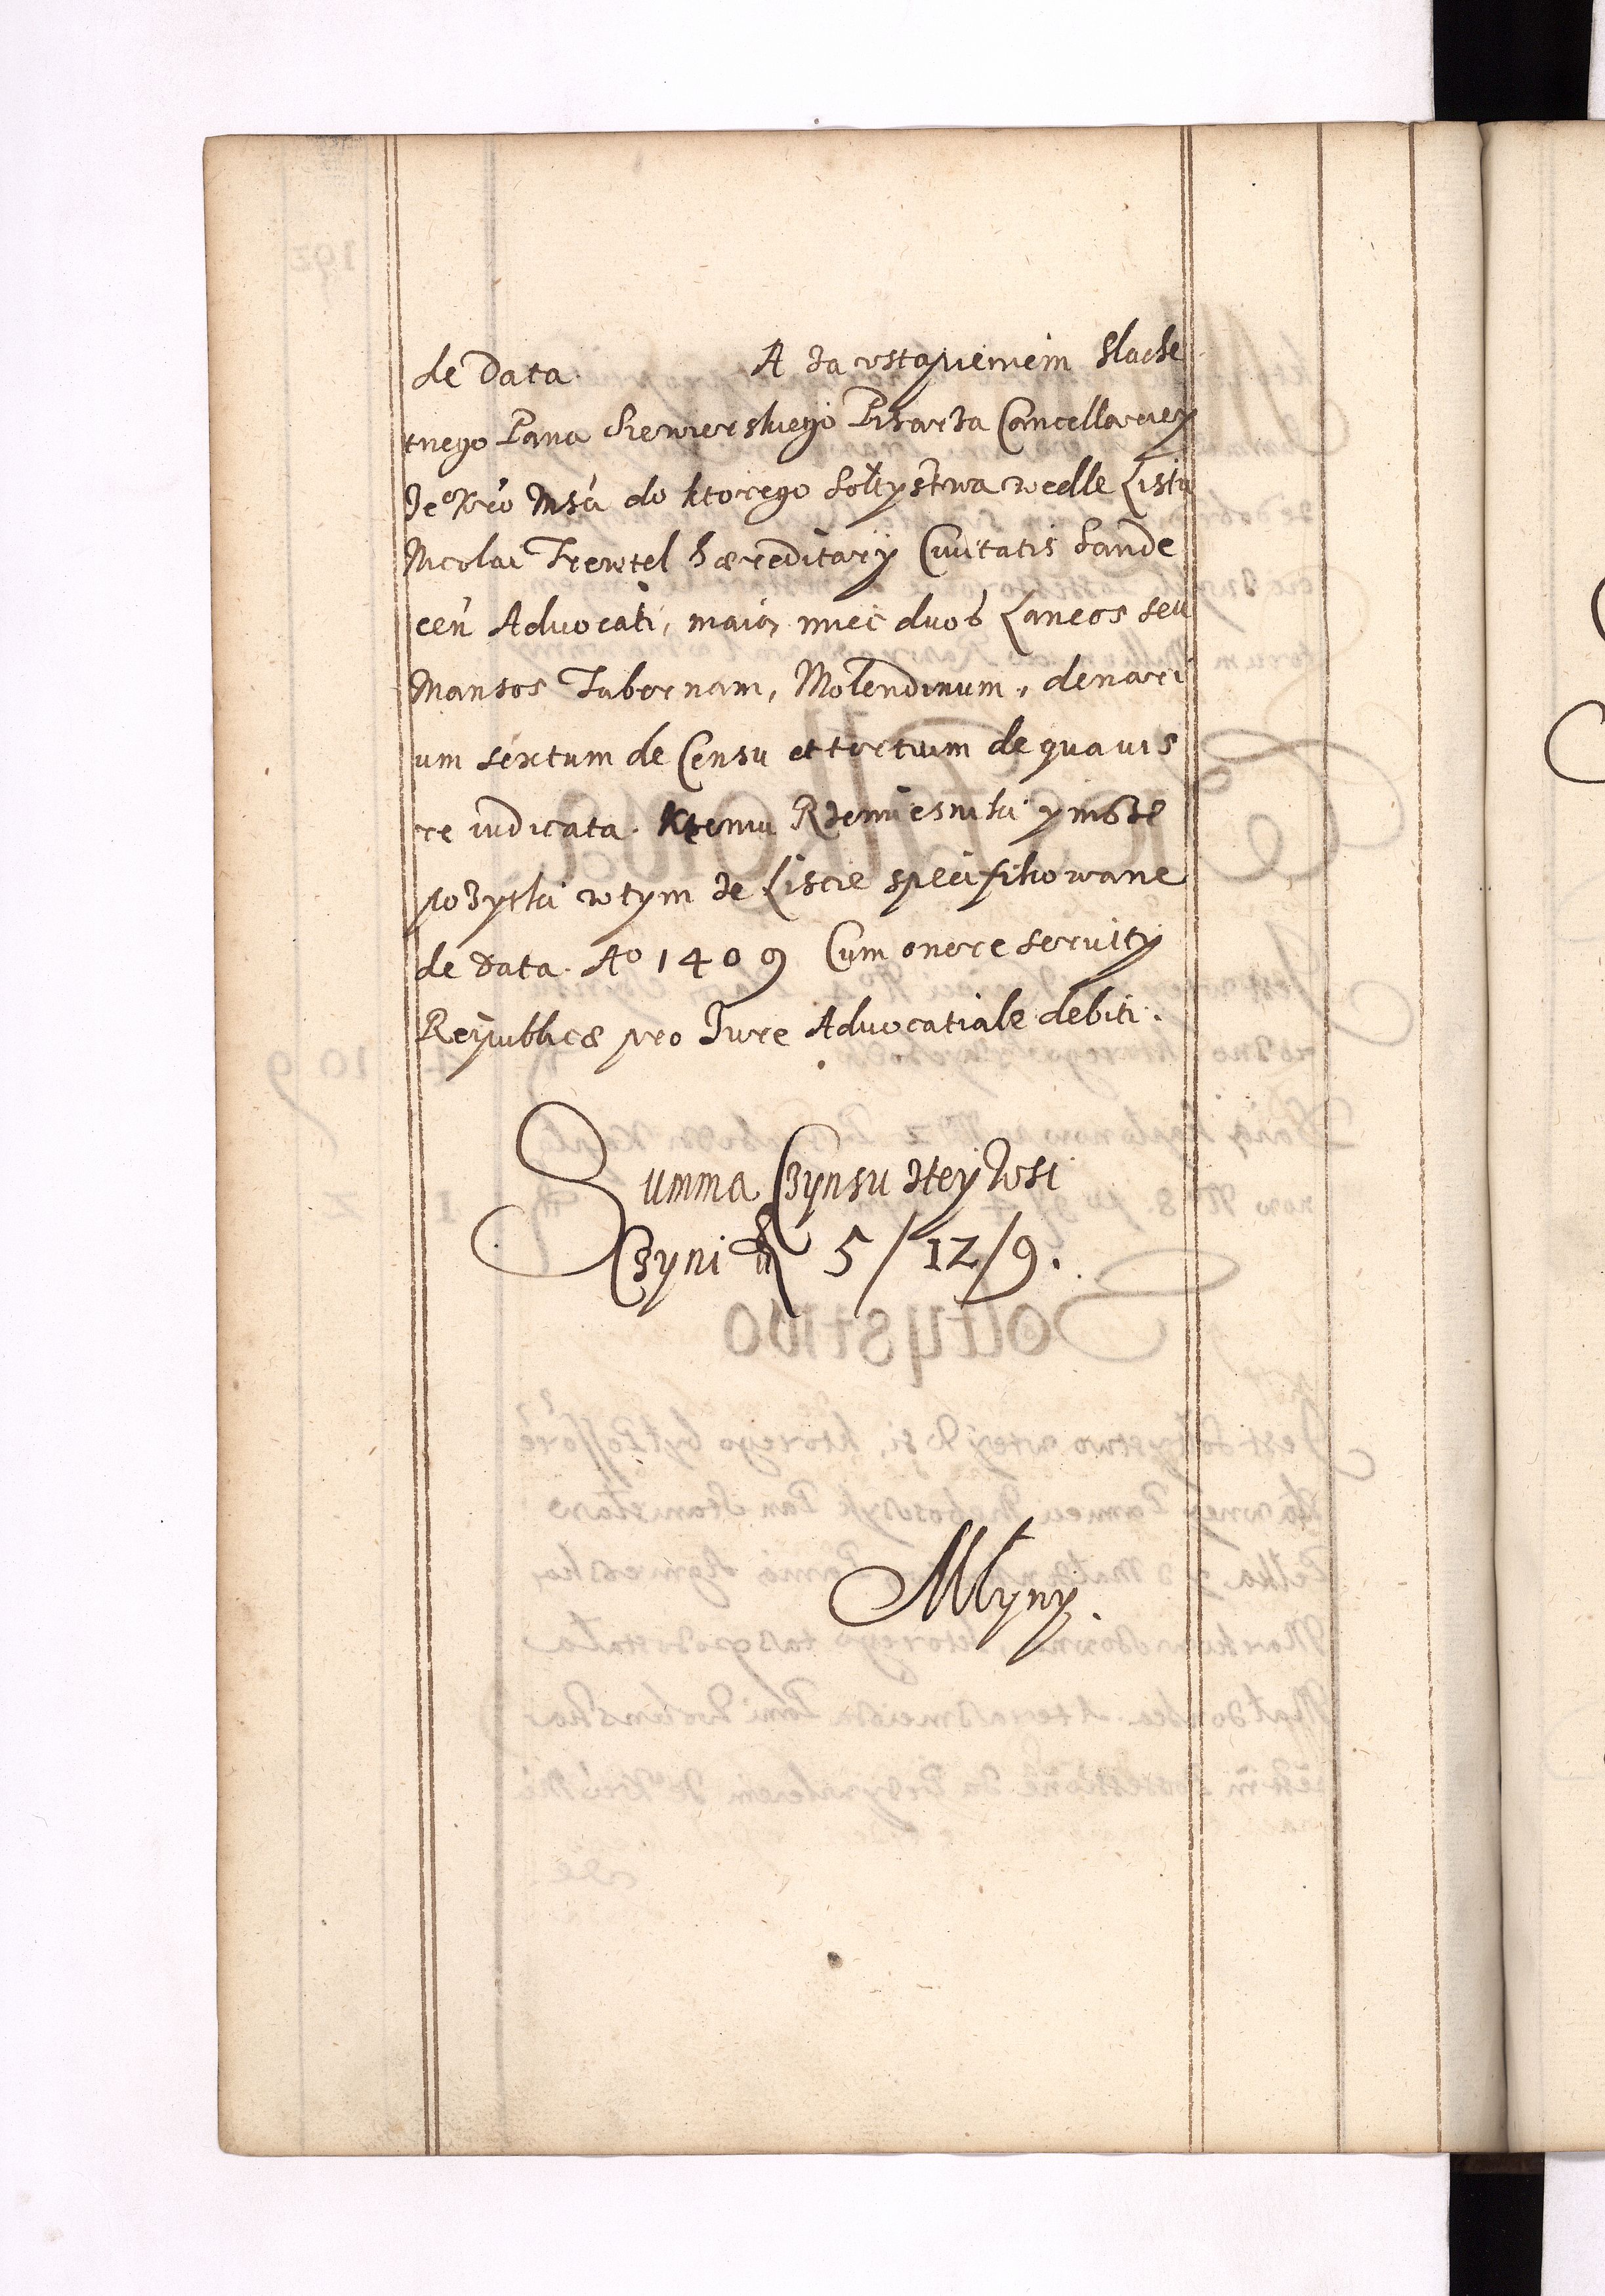 de Data. A za vstąpieniem Slache
tnego Pana Siewierskiego Pisarza Cancellariey
Je° Kro Mści do ktorego Sołtystwa wedle Listu
Nicolai Trewtel hæreditarÿ Civitatis Sande
ceń Advocati, maią mieć duos Laneos seu
Mansos Tabernam, Molendinum, denari
um sextum de Censu et tertium de quavis
re iudicata. Ktemu Rzemiesniki y insze
pozytki w tym ze Liscie specifikowane
de Data. A° 1409 Cum onere servitÿ
Reipublicæ pro Jure Advocatiale debiti.
Summa Czynsu ztey Wsi
Czyni 5/12/9.
Młyny.